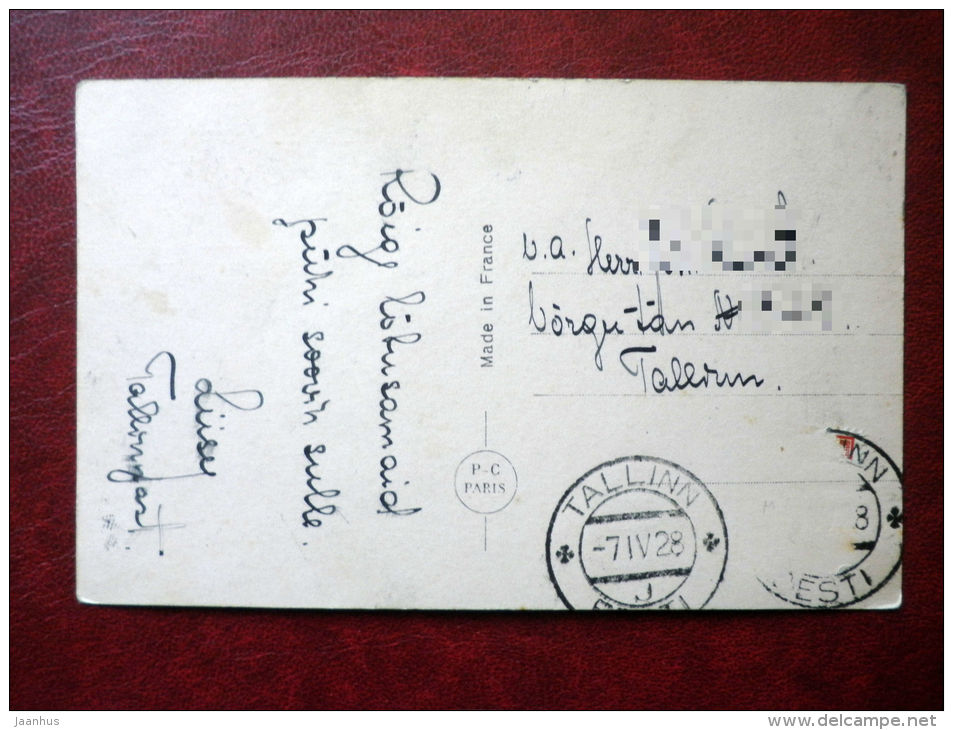 Kõige lõbusamaid
pühi soovin sulle.
Liisu
Tallinnast.
Made in France
P-C
PARIS
v.a. Herr
Võrgu tän №
Tallinn.
TALLINN
-7 IV 28
J
EESTI
NN
8
EESTI
Jaanhus
www.delcampe.net